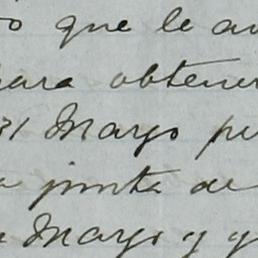 o que le au
para obtener
31 Mayo pu
a junta de
Mayo y q